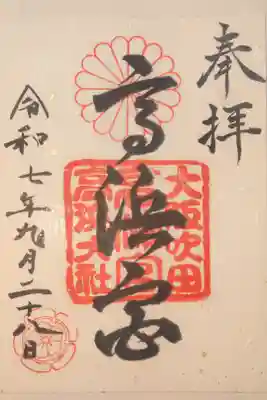 奉拝
高浜宮
大阪吹田
高濱大社
令和七年九月二十八日